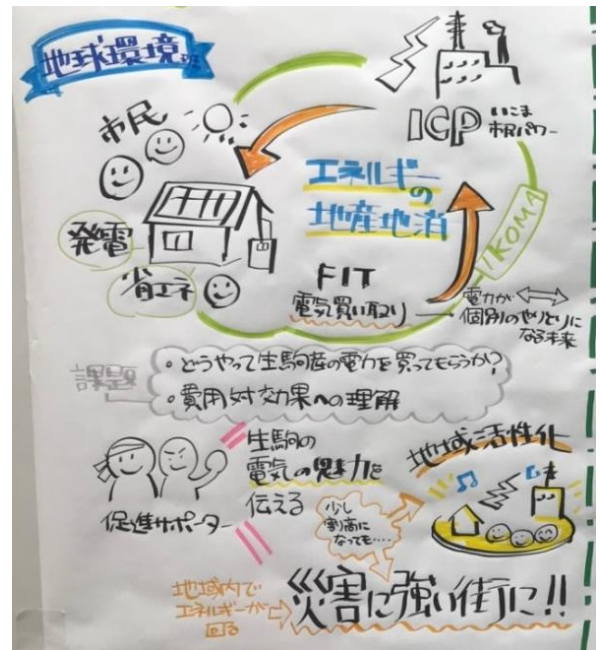 地球環境班
市民
ICP
いこま
市民パワー
エネルギー
の
地産地消
発電
省エネ
IKOMA
FIT
電気買い取り
電力が
個別のやりとりに
なる未来
課題
・どうやって生駒産の電力を買ってもらうか?
・費用対効果への理解
促進サポーター
生駒の
電気の魅力を
伝える
地域活性化
少し
割高に
なっても....
地域内で
エネルギーが
回る
災害に強い街に!!